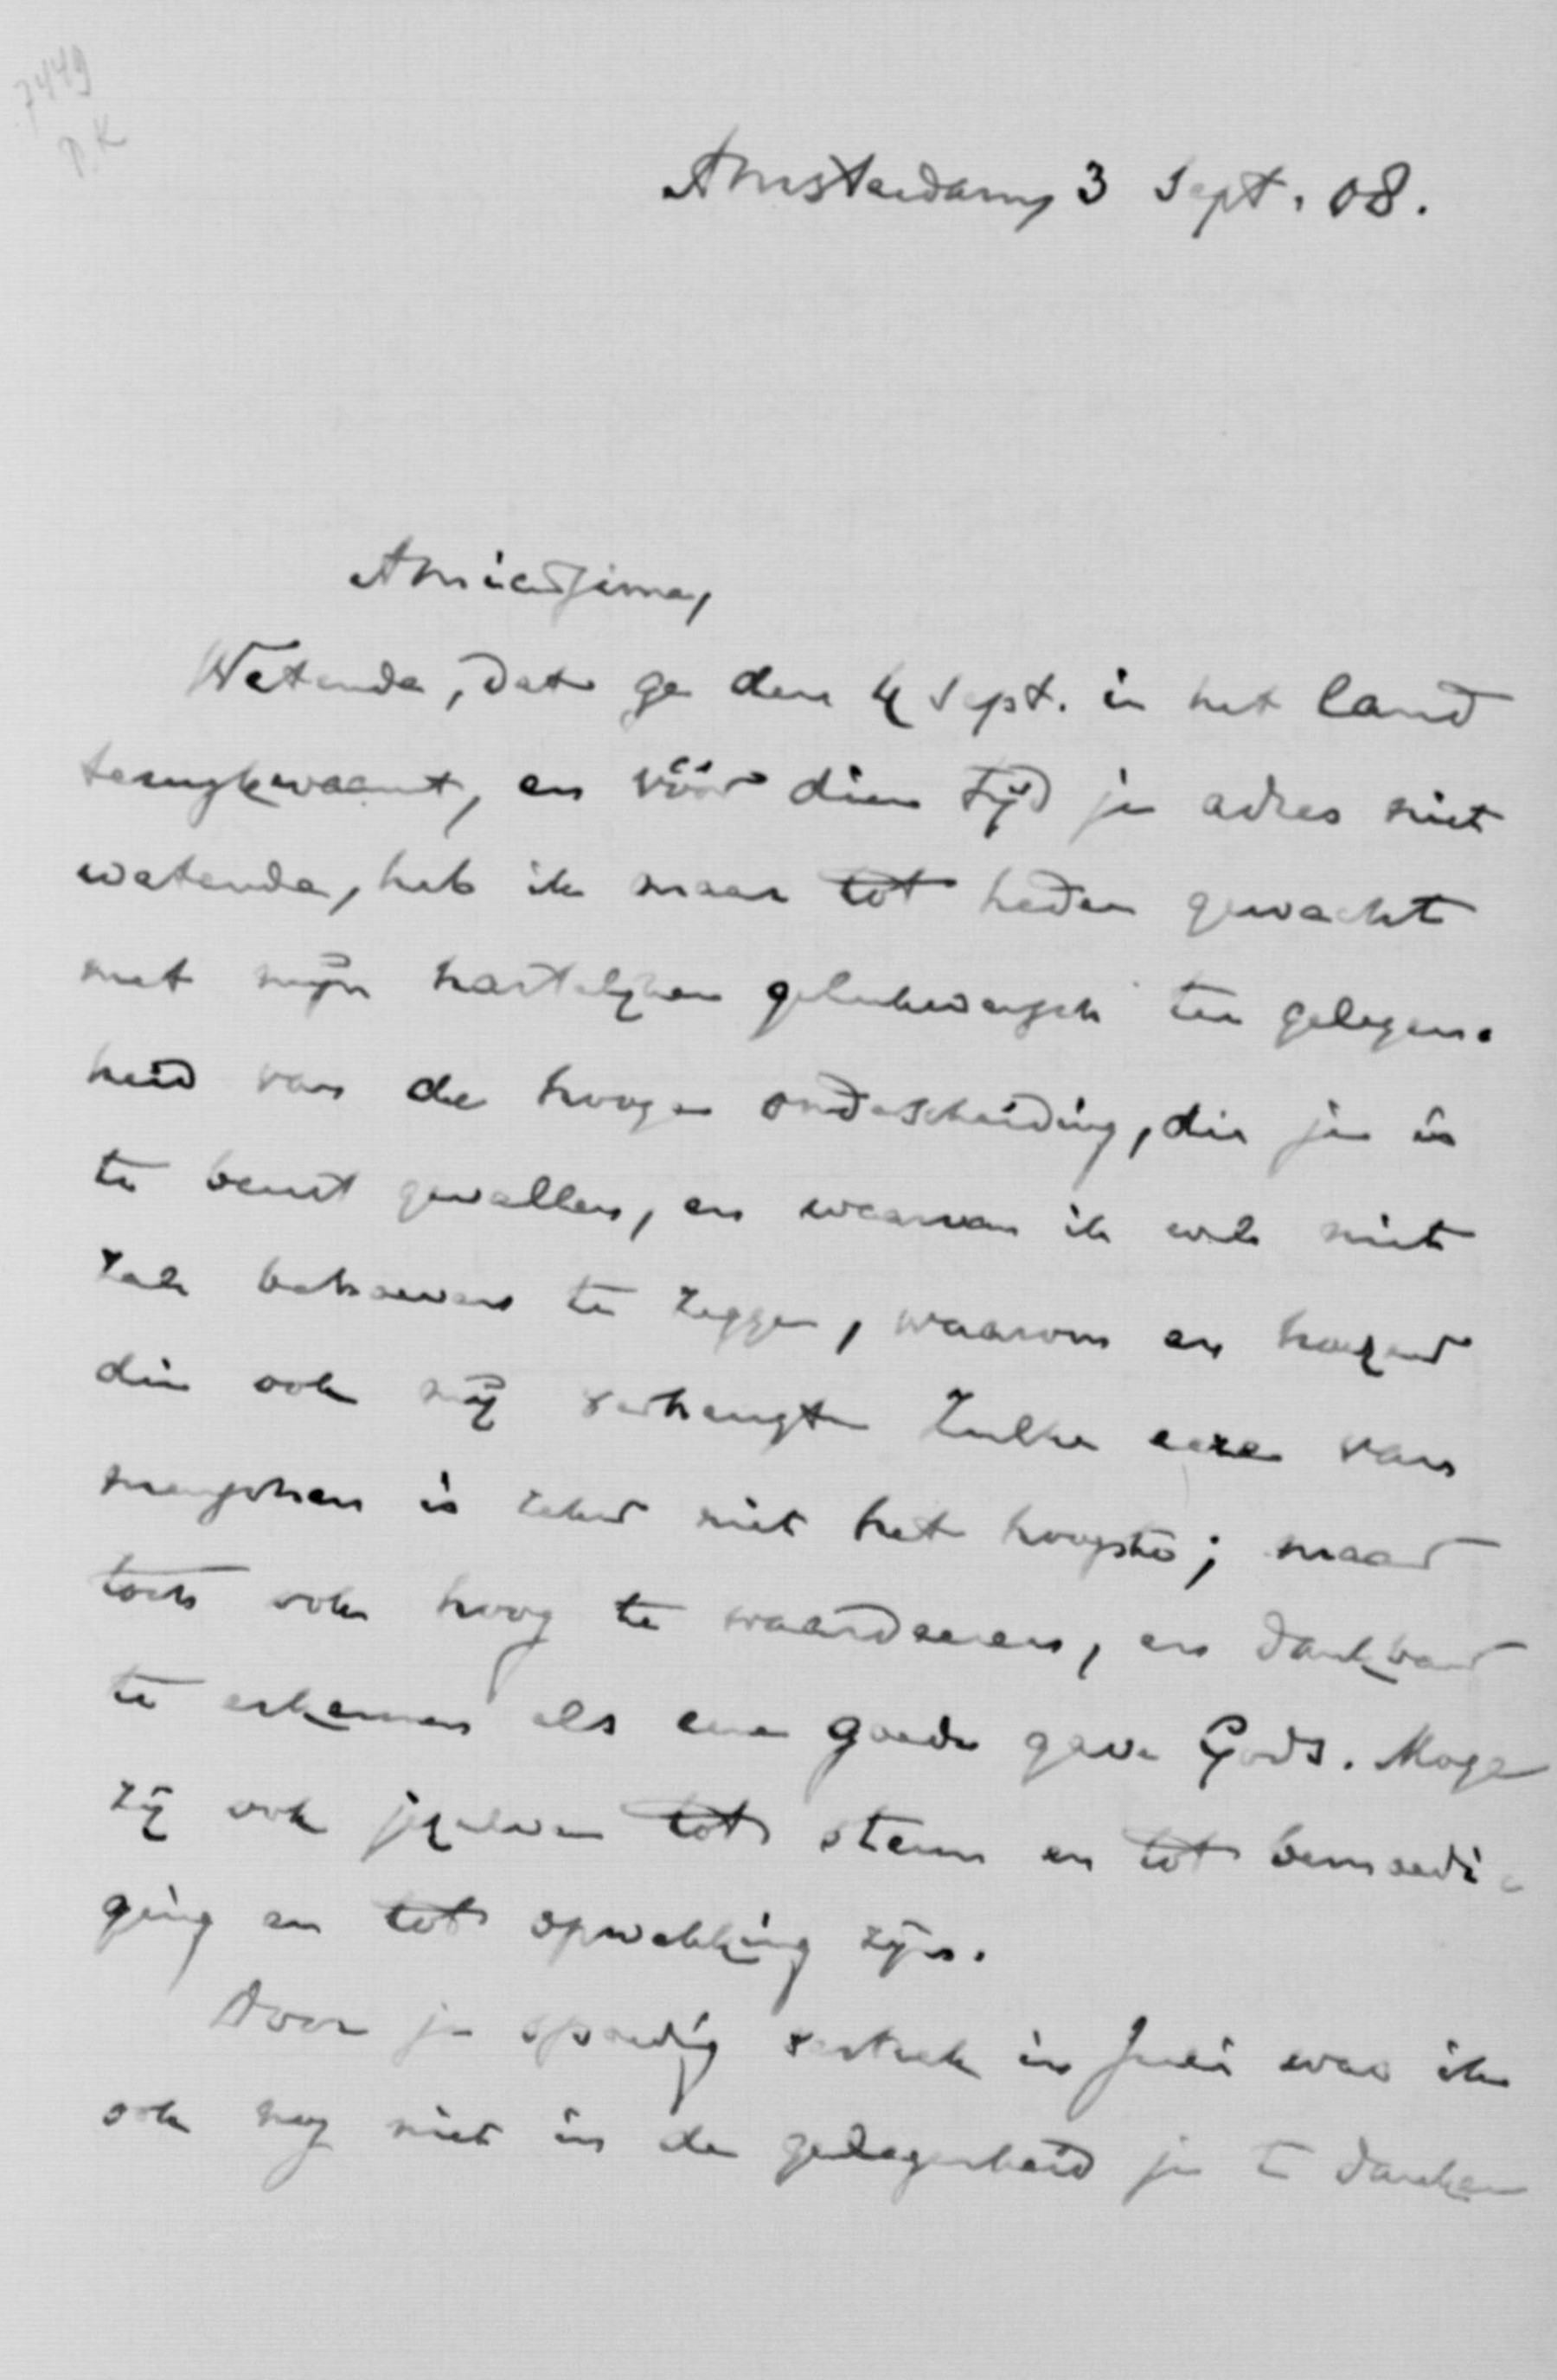 7449
P.K
Amsterdam, 3 Sept. 08.
Amicissime,
Wetende, dat ge den 4 Sept. in het land
terugkwaamt, en vóór dien tijd je adres niet
wetende, heb ik maar tot heden gewacht
met mijn hartelijken gelukwensch ten gelegen-
heid van de hooge onderscheiding, die je is
te beurt gevallen, en waarvan ik wel niet
zal behoeven te zeggen, waarom en hoezeer
die ook mij verheugt. Zulke eere van
menschen is zeker niet het hoogste; maar
toch ook hoog te waardeeren, en dankbaar
te erkennen als eene goede gave Gods. Moge
zij ook jezelven tot steun en tot bemoedi-
ging en tot opwekking zijn.
Door je spoedig vertrek in Juli was ik
ook nog niet in de gelegenheid je te danken